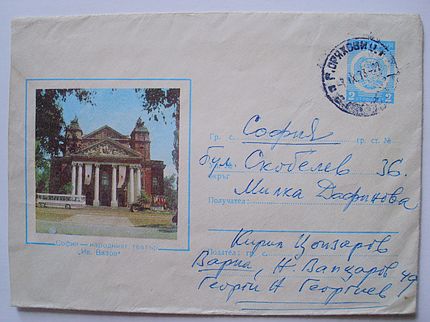 Г. ОРЯХОВИЦА
2 2
Гр. с. София гр. ст. №
бул. Скобелев 36.
окръг
Милка Дафинова
Получател:
София — народният театър
„Ив. Вазов“
Кирил
Подател: гр. с.
Варна, Н. Вапцаров 49
Георги Георгиев